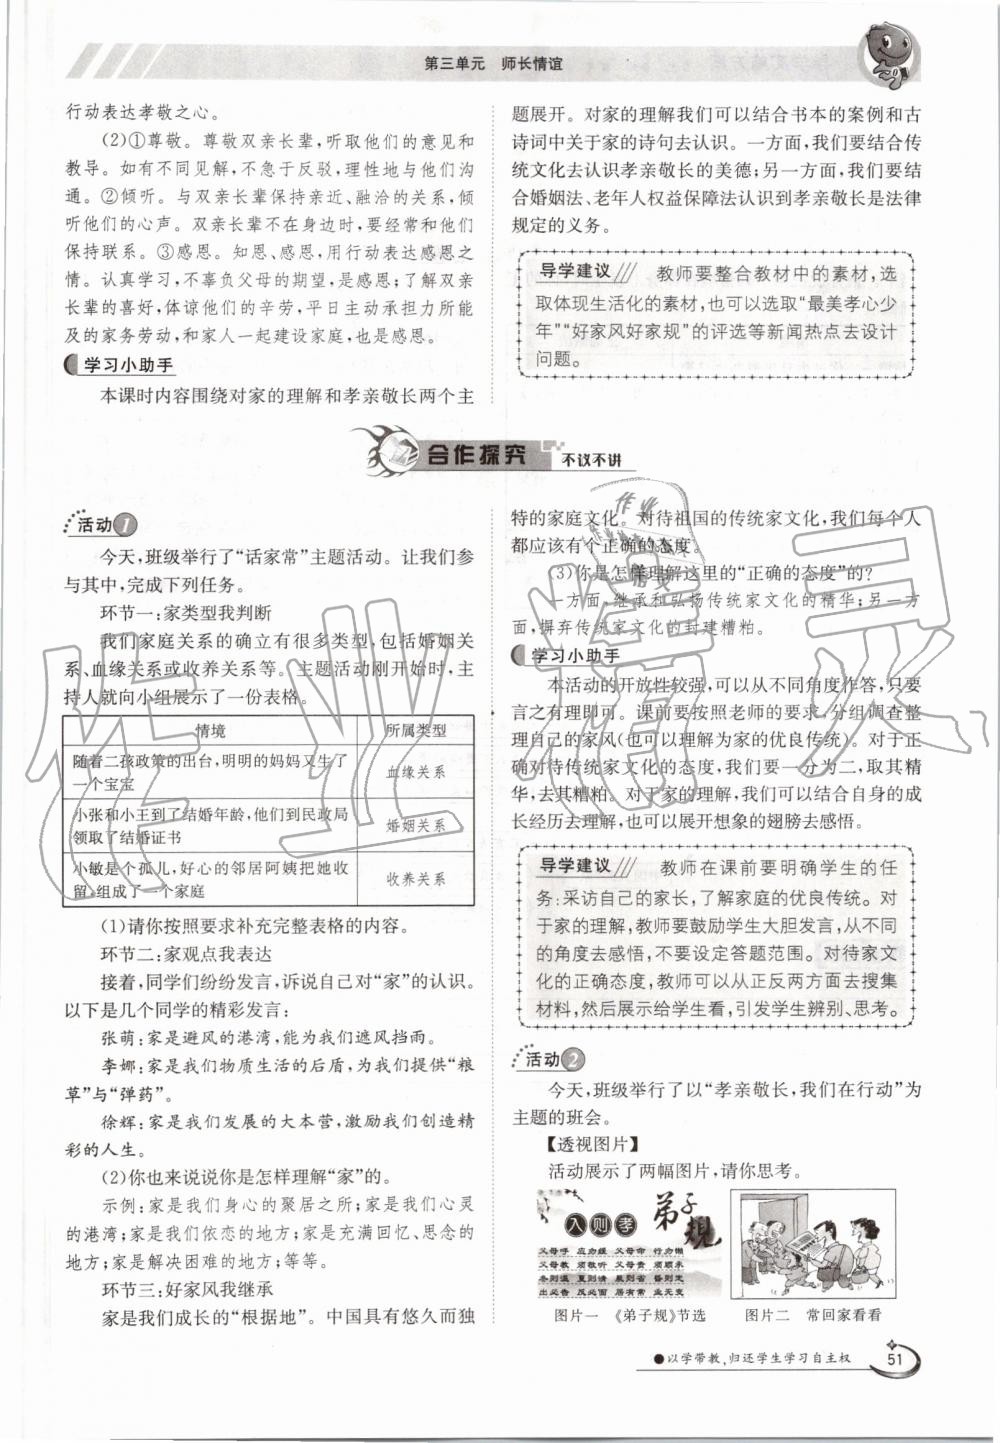 第三单元　师长情谊
行动表达孝敬之心。
(2)①尊敬。尊敬双亲长辈,听取他们的意见和
教导。如有不同见解,不急于反驳,理性地与他们沟
通。②倾听。与双亲长辈保持亲近、融洽的关系,倾
听他们的心声。双亲长辈不在身边时,要经常和他们
保持联系。③感恩。知恩、感恩,用行动表达感恩之
情。认真学习,不辜负父母的期望,是感恩;了解双亲
长辈的喜好,体谅他们的辛劳,平日主动承担力所能
及的家务劳动,和家人一起建设家庭,也是感恩。
学习小助手
本课时内容围绕对家的理解和孝亲敬长两个主
题展开。对家的理解我们可以结合书本的案例和古
诗词中关于家的诗句去认识。一方面,我们要结合传
统文化去认识孝亲敬长的美德;另一方面,我们要结
合婚姻法、老年人权益保障法认识到孝亲敬长是法律
规定的义务。
导学建议 教师要整合教材中的素材,选
取体现生活化的素材,也可以选取“最美孝心少
年”“好家风好家规”的评选等新闻热点去设计
问题。
合作探究 不议不讲
活动1
今天,班级举行了“话家常”主题活动。让我们参
与其中,完成下列任务。
环节一:家类型我判断
我们家庭关系的确立有很多类型,包括婚姻关
系、血缘关系或收养关系等。主题活动刚开始时,主
持人就向小组展示了一份表格。
情境 所属类型
随着二孩政策的出台,明明的妈妈又生了
一个宝宝
血缘关系
小张和小王到了结婚年龄,他们到民政局
领取了结婚证书
婚姻关系
小敏是个孤儿,好心的邻居阿姨把她收
留,组成了一个家庭
收养关系
(1)请你按照要求补充完整表格的内容。
环节二:家观点我表达
接着,同学们纷纷发言,诉说自己对“家”的认识。
以下是几个同学的精彩发言:
张萌:家是避风的港湾,能为我们遮风挡雨。
李娜:家是我们物质生活的后盾,为我们提供“粮
草”与“弹药”。
徐辉:家是我们发展的大本营,激励我们创造精
彩的人生。
(2)你也来说说你是怎样理解“家”的。
示例:家是我们身心的聚居之所;家是我们心灵
的港湾;家是我们依恋的地方;家是充满回忆、思念的
地方;家是解决困难的地方;等等。
环节三:好家风我继承
家是我们成长的“根据地”。中国具有悠久而独
特的家庭文化。对待祖国的传统家文化,我们每个人
都应该有个正确的态度。
(3)你是怎样理解这里的“正确的态度”的?
一方面,继承和弘扬传统家文化的精华;另一方
面,摒弃传统家文化的封建糟粕。
学习小助手
本活动的开放性较强,可以从不同角度作答,只要
言之有理即可。课前要按照老师的要求,分组调查整
理自己的家风(也可以理解为家的优良传统)。对于正
确对待传统家文化的态度,我们要一分为二,取其精
华,去其糟粕。对于家的理解,我们可以结合自身的成
长经历去理解,也可以展开想象的翅膀去感悟。
导学建议 教师在课前要明确学生的任
务:采访自己的家长,了解家庭的优良传统。对
于家的理解,教师要鼓励学生大胆发言,从不同
的角度去感悟,不要设定答题范围。对待家文
化的正确态度,教师可以从正反两方面去搜集
材料,然后展示给学生看,引发学生辨别、思考。
活动2
今天,班级举行了以“孝亲敬长,我们在行动”为
主题的班会。
【透视图片】
活动展示了两幅图片,请你思考。
入则孝 弟子规
父母呼 应勿缓 父母命 行勿懒
父母教 须敬听 父母责 须顺承
冬则温 夏则凊 晨则省 昏则定
出必告 反必面 居有常 业无变
图片一　《弟子规》节选
图片二　常回家看看
●以学带教,归还学生学习自主权
51
作业精灵